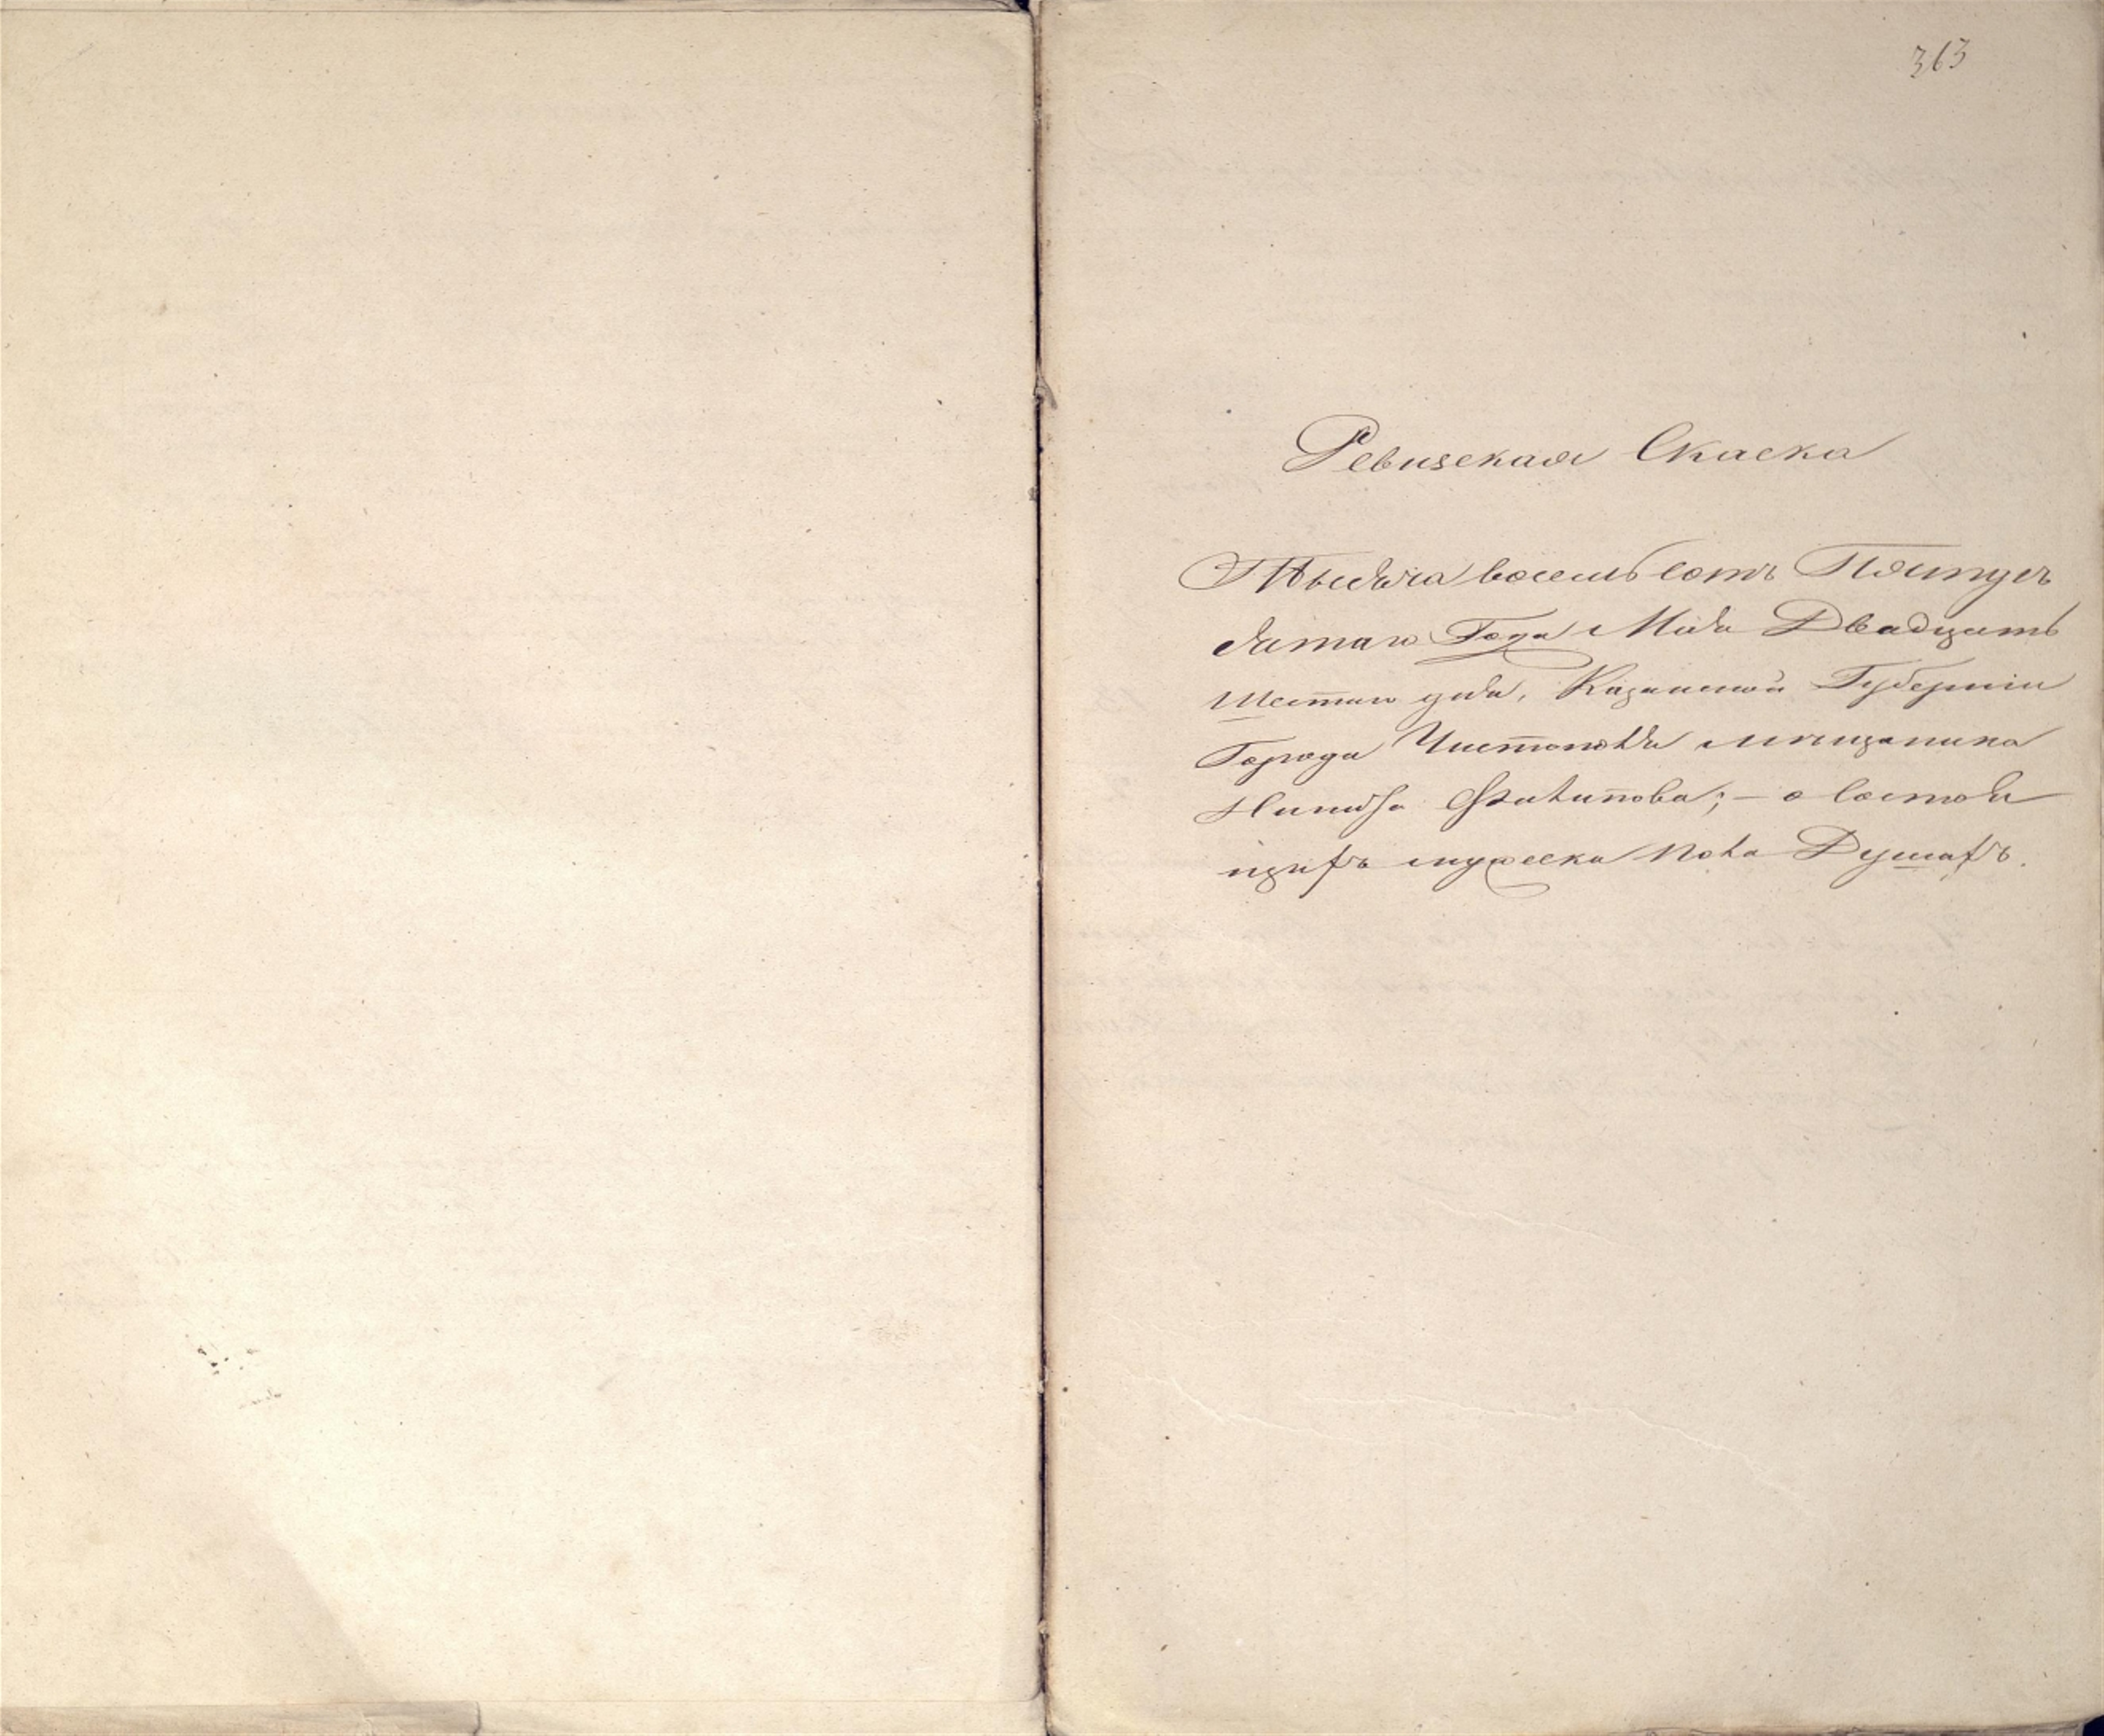 363
Ревизская Скаска
Тысяча восемь сотъ Пятидес
ятаго Года Маiя Двадцать
Шестаго дня, Казанской Губернiи
Города Чистополя мещанина
Филипова; – о состоя
щихъ мужеска пола Душахъ.